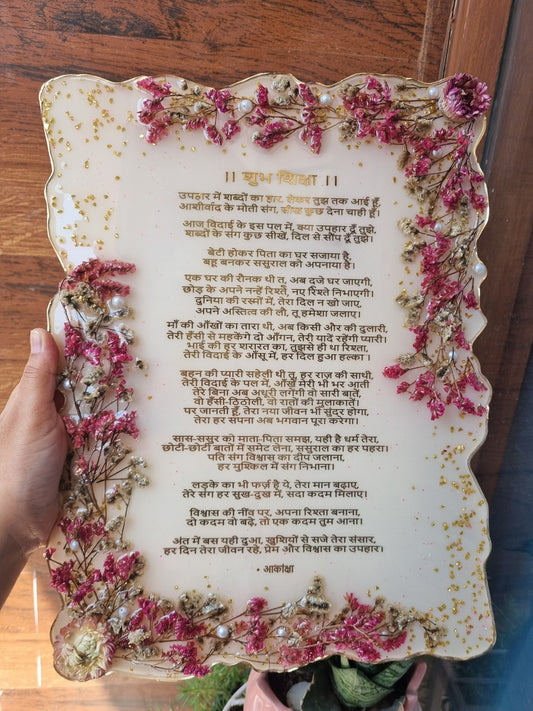 || शुभ शिक्षा ||
उपहार में शब्दों का हार, लेकर तुझ तक आई हूँ,
आशीर्वाद के मोती संग, सीख कुछ देना चाही हूँ।
आज विदाई के इस पल में, क्या उपहार दूँ तुझे,
शब्दों के संग कुछ सीखें, दिल से सौंप दूँ तुझे।
बेटी होकर पिता का घर सजाया है,
बहू बनकर ससुराल को अपनाया है।
एक घर की रौनक थी तू, अब दूजे घर जाएगी,
छोड़ के अपने नन्हें रिश्ते, नए रिश्ते निभाएगी।
दुनिया की रस्मों में, तेरा दिल न खो जाए,
अपने अस्तित्व की लौ, तू हमेशा जलाए।
माँ की आँखों का तारा थी, अब किसी और की दुलारी,
तेरी हँसी से महकेंगे दो आँगन, तेरी यादें रहेंगी प्यारी।
भाई की हर शरारत का, तुझसे ही था रिश्ता,
तेरी विदाई के आँसू में, हर दिल हुआ हल्का।
बहन की प्यारी सहेली थी तू, हर राज़ की साथी,
तेरी विदाई के पल में, आँखें मेरी भी भर आती
तेरे बिना अब अधूरी लगेंगी वो सारी बातें,
वो हँसी-ठिठोली, वो रातों की मुलाकातें।
पर जानती हूँ, तेरा नया जीवन भी सुंदर होगा,
तेरा हर सपना अब भगवान पूरा करेगा।
सास-ससुर को माता-पिता समझ, यही है धर्म तेरा,
छोटी-छोटी बातों में समेट लेना, ससुराल का हर पहरा।
पति संग विश्वास का दीप जलाना,
हर मुश्किल में संग निभाना।
लड़के का भी फर्ज़ है ये, तेरा मान बढ़ाए,
तेरे संग हर सुख-दुख में, सदा कदम मिलाए।
विश्वास की नींव पर, अपना रिश्ता बनाना,
दो कदम वो बढ़े, तो एक कदम तुम आना।
अंत में बस यही दुआ, खुशियों से सजे तेरा संसार,
हर दिन तेरा जीवन रहे, प्रेम और विश्वास का उपहार।
• आकांक्षा